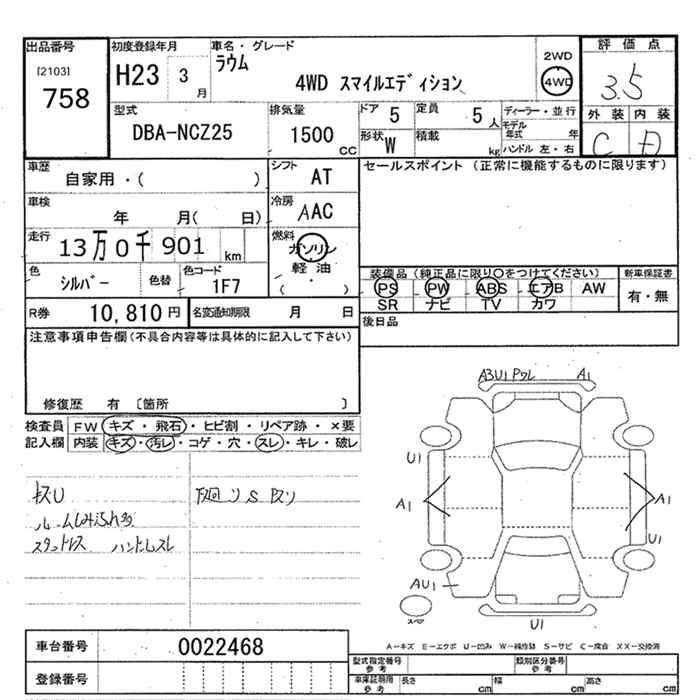 出品番号
[2103]
758
初度登録年月
H23 3月
車名・グレード
ラウム
4WD スマイルエディション
2WD
4WD
評価点
3.5
外装 内装
C D
型式
DBA-NCZ25
排気量
1500 CC
ドア 5
定員 5人
形状 W
積載 kg
ディーラー・並行
モデル年式 年
ハンドル 左・右
車歴
自家用・( )
シフト AT
セールスポイント (正常に機能するものに限ります)
車検
年 月( 日)
冷房 AAC
走行 13万0千901 km
燃料
ガソリン
軽油
( ・ )
色 シルバー
色替
色コード
1F7
装備品(純正品に限り○をつけてください)
新車保証書
PS PW ABS エアB AW
SR ナビ TV カワ
有・無
R券 10,810円
名変通知期限 月 日
後日品
注意事項申告欄(不具合内容等は具体的に記入して下さい)
修復歴 有 [箇所 ]
検査員
記入欄
FW キズ・飛石・ヒビ割・リペア跡・×要
内装 キズ・汚レ・コゲ・穴・スレ・キレ・破レ
スタットレス ハンドルスレ
A3U1 A1
U1
A1
A1
U1
AU1
スペア
U1
A-キズ E-エクボ U-凹み W-補修跡 S-サビ C-腐食 XX-交換済
車台番号 0022468
登録番号
型式指定番号
参考
類別区分番号
参考
車庫証明用
参考
長さ cm
幅 cm
高さ cm